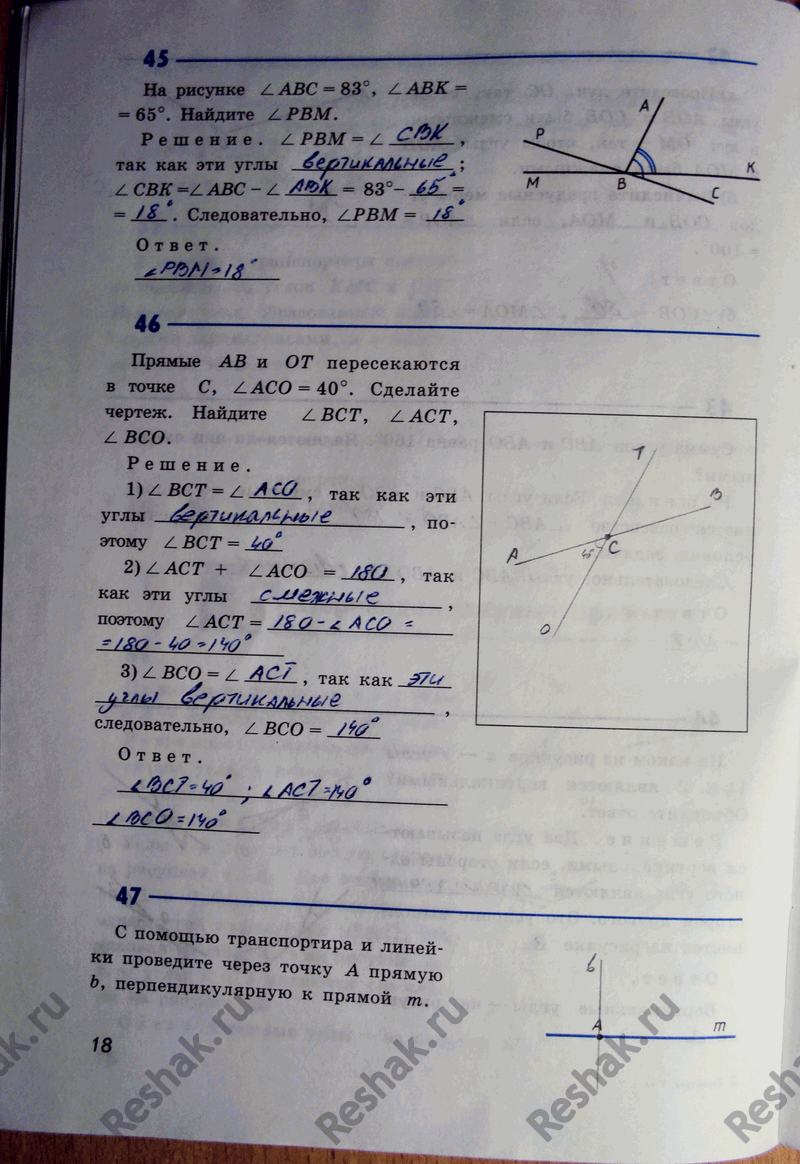 45
На рисунке ∠ABC = 83°, ∠ABK =
= 65°. Найдите ∠PBM.
Решение. ∠PBM = ∠ CBK ,
так как эти углы вертикальные ;
∠CBK = ∠ABC − ∠ ABK = 83° − 65° =
= 18° . Следовательно, ∠PBM = 18°
Ответ.
∠PBM = 18°
A
P
K
M
B
C
46
Прямые AB и OT пересекаются
в точке C, ∠ACO = 40°. Сделайте
чертеж. Найдите ∠BCT, ∠ACT,
∠BCO.
Решение.
1) ∠BCT = ∠ ACO , так как эти
углы вертикальные , по-
этому ∠BCT = 40°
2) ∠ACT + ∠ACO = 180 , так
как эти углы смежные ,
поэтому ∠ACT = 180 - ∠ACO =
= 180 - 40 = 140°
3) ∠BCO = ∠ ACT , так как эти
углы вертикальные ,
следовательно, ∠BCO = 140°
Ответ.
∠BCT = 40° ; ∠ACT = 140°
∠BCO = 140°
T
B
A
C
O
47
С помощью транспортира и линей-
ки проведите через точку A прямую
b, перпендикулярную к прямой m.
b
A
m
18
Reshak.ru
Reshak.ru
Reshak.ru
Reshak.ru